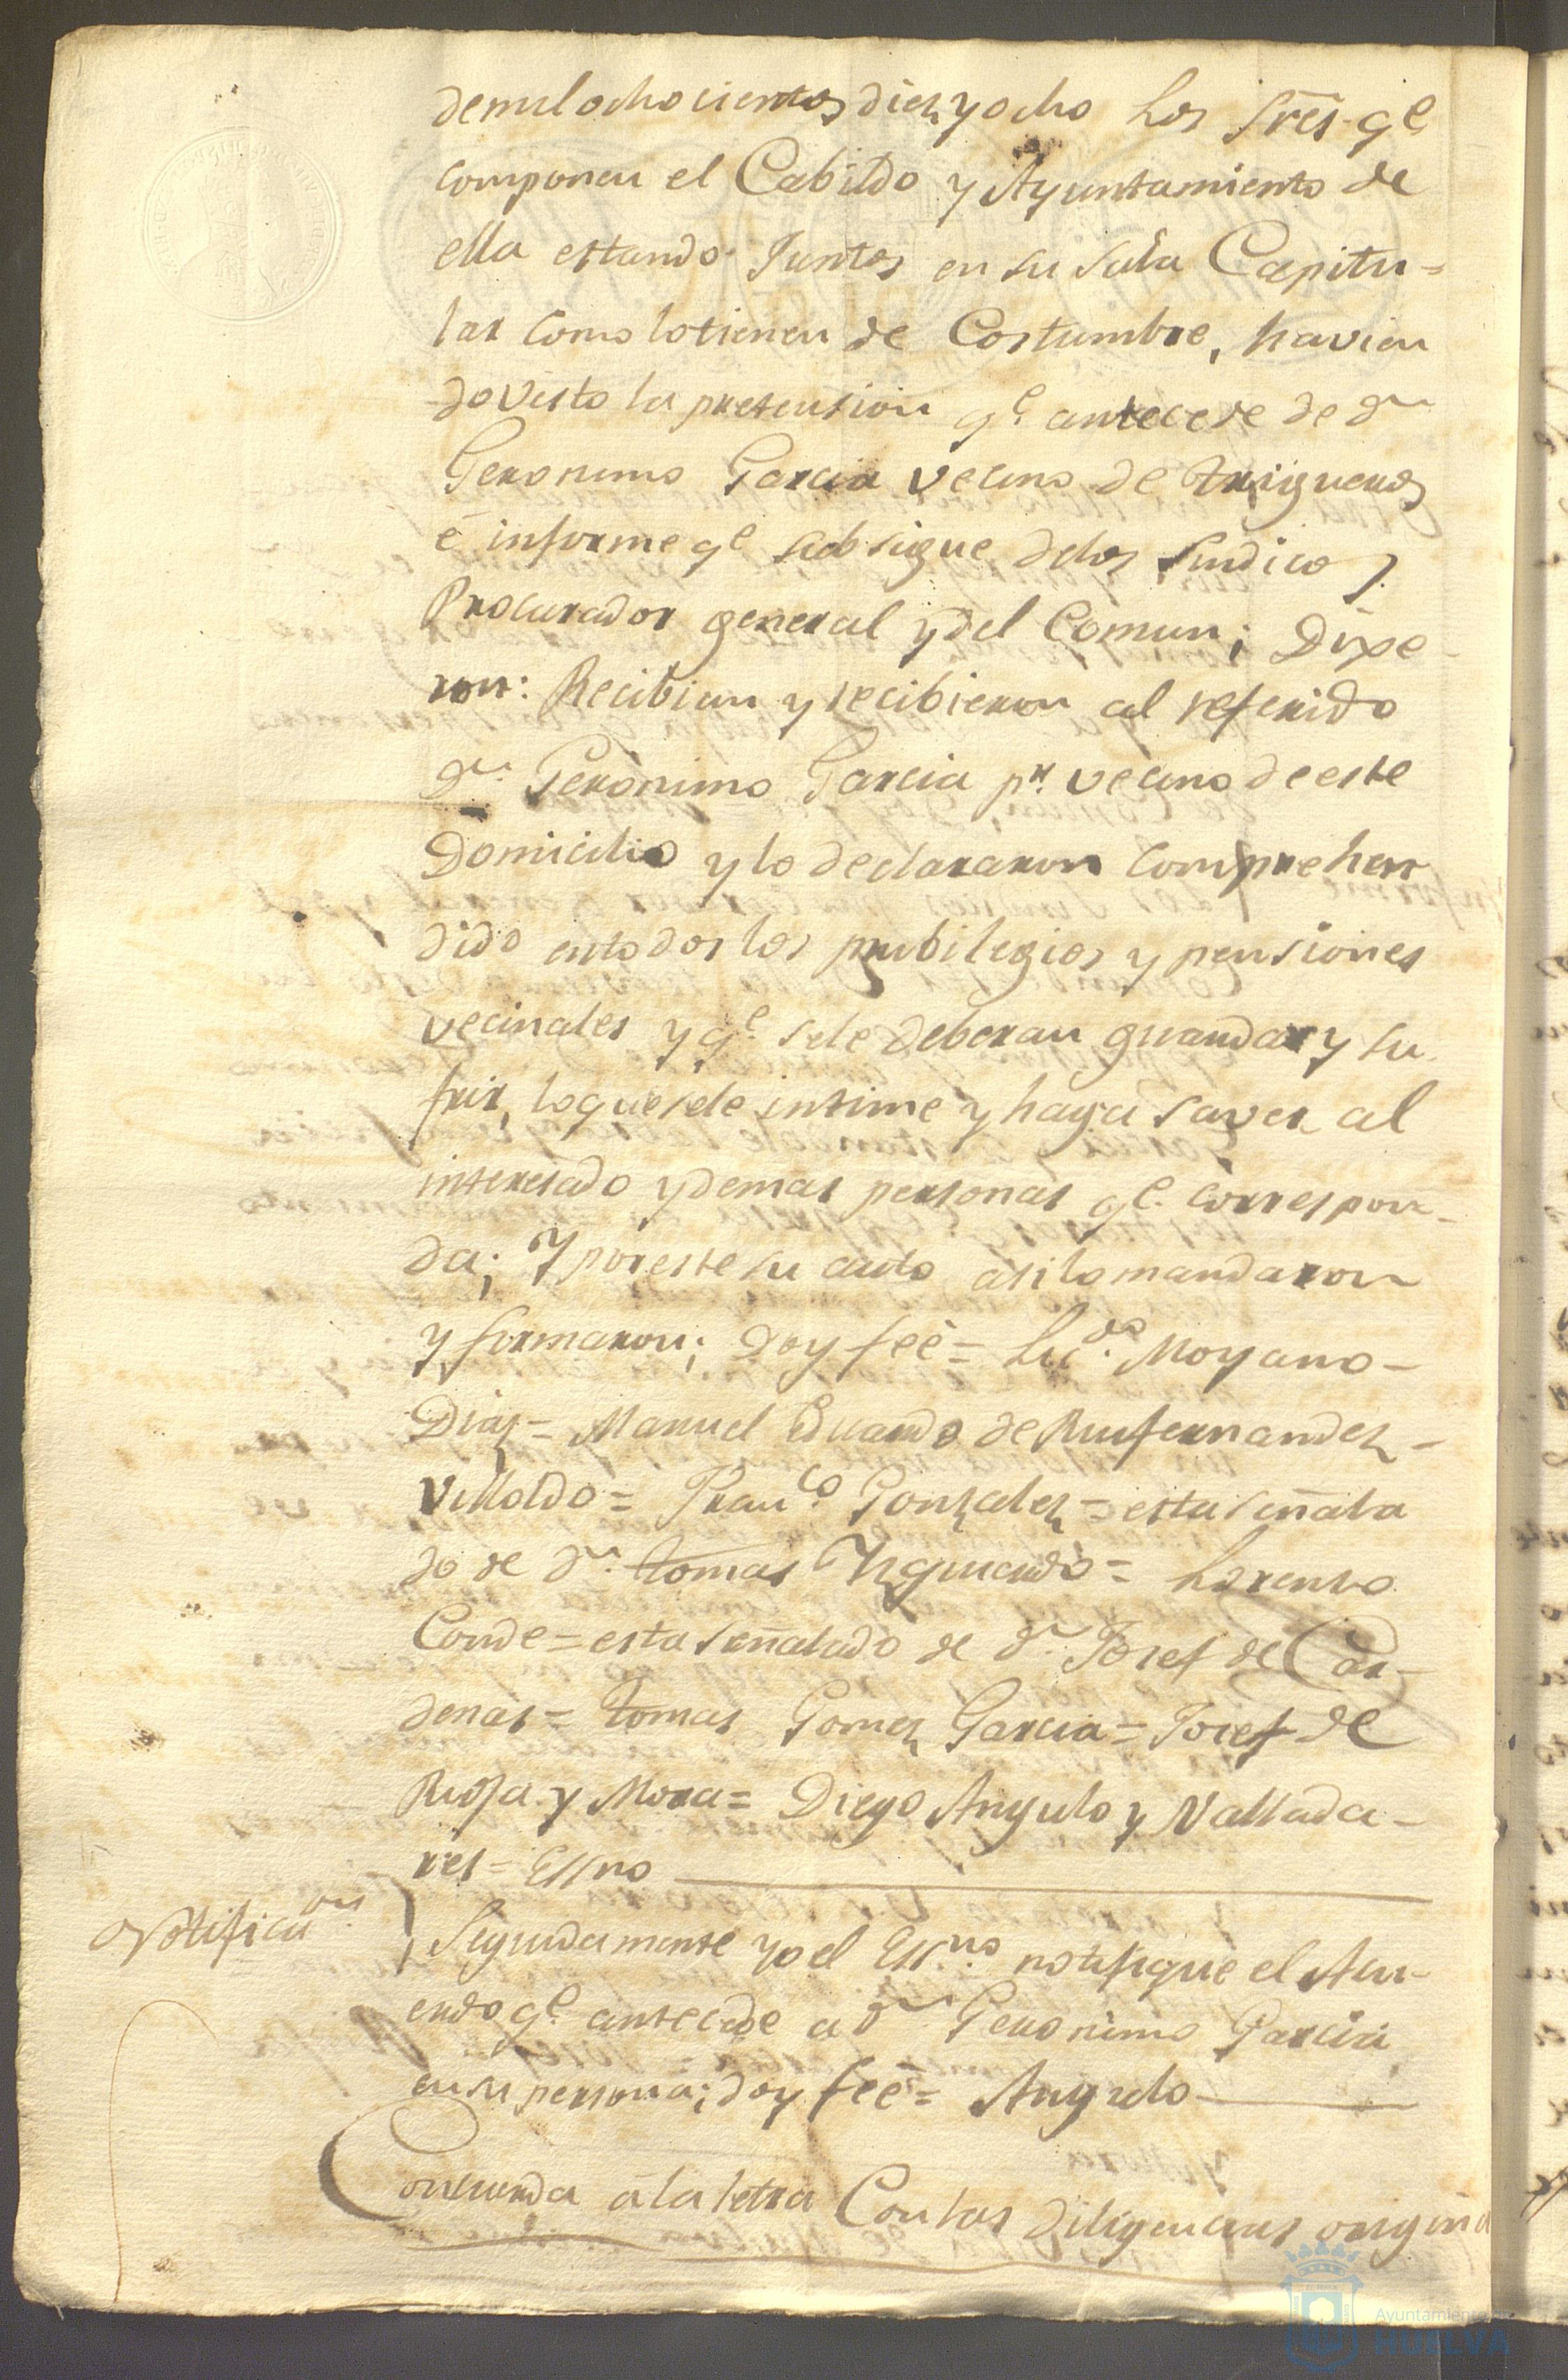 demil ochocientos diez y ocho Los Sres. qe.
componen el Cabildo y Ayuntamiento de
ella estando Juntos en su Sala Capitu=
lar como lo tienen de Costumbre, havien
do visto la pretension qe. antecede de dn
Geronimo Garcia vecino de trigueros
é informe qe subsigue delos Sindicos
Procurador general y del Comun; Dixe-
ron: Recibian y recibieron al referido
dn. Geronimo Garcia pr. vecino de este
Domicilio y lo declararon comprehen
dido en todos los pribilegios y pensiones
vecinales y qe. sele deberan guardar y su
frir, lo que sele intime y haga saver al
interesado y demas personas qe. correspon-
da; Y por este su auto asi lo mandaron
y firmaron; Doy feé= Licdo. Moyano-
Diaz= Manuel Eduardo de Ruifernandez-
Villoldo= Franco. Gonzalez= esta señala
do de dn. tomas Yzquierdo= Lorenzo
Conde= esta señalado de dn. Josef de Car-
denas= tomas Gomez Garcia= Josef de
Rioja y Mora= Diego Angulo y Vallada-
res= Essno
Notificaon. Seguidamente yo el Essno. notifique el Acu-
erdo qe. antecede a dn Geronimo Garcia
en su persona; doy feé= Angulo
Concuerda a la letra Con las diligencias origina
Ayuntamiento
HUELVA